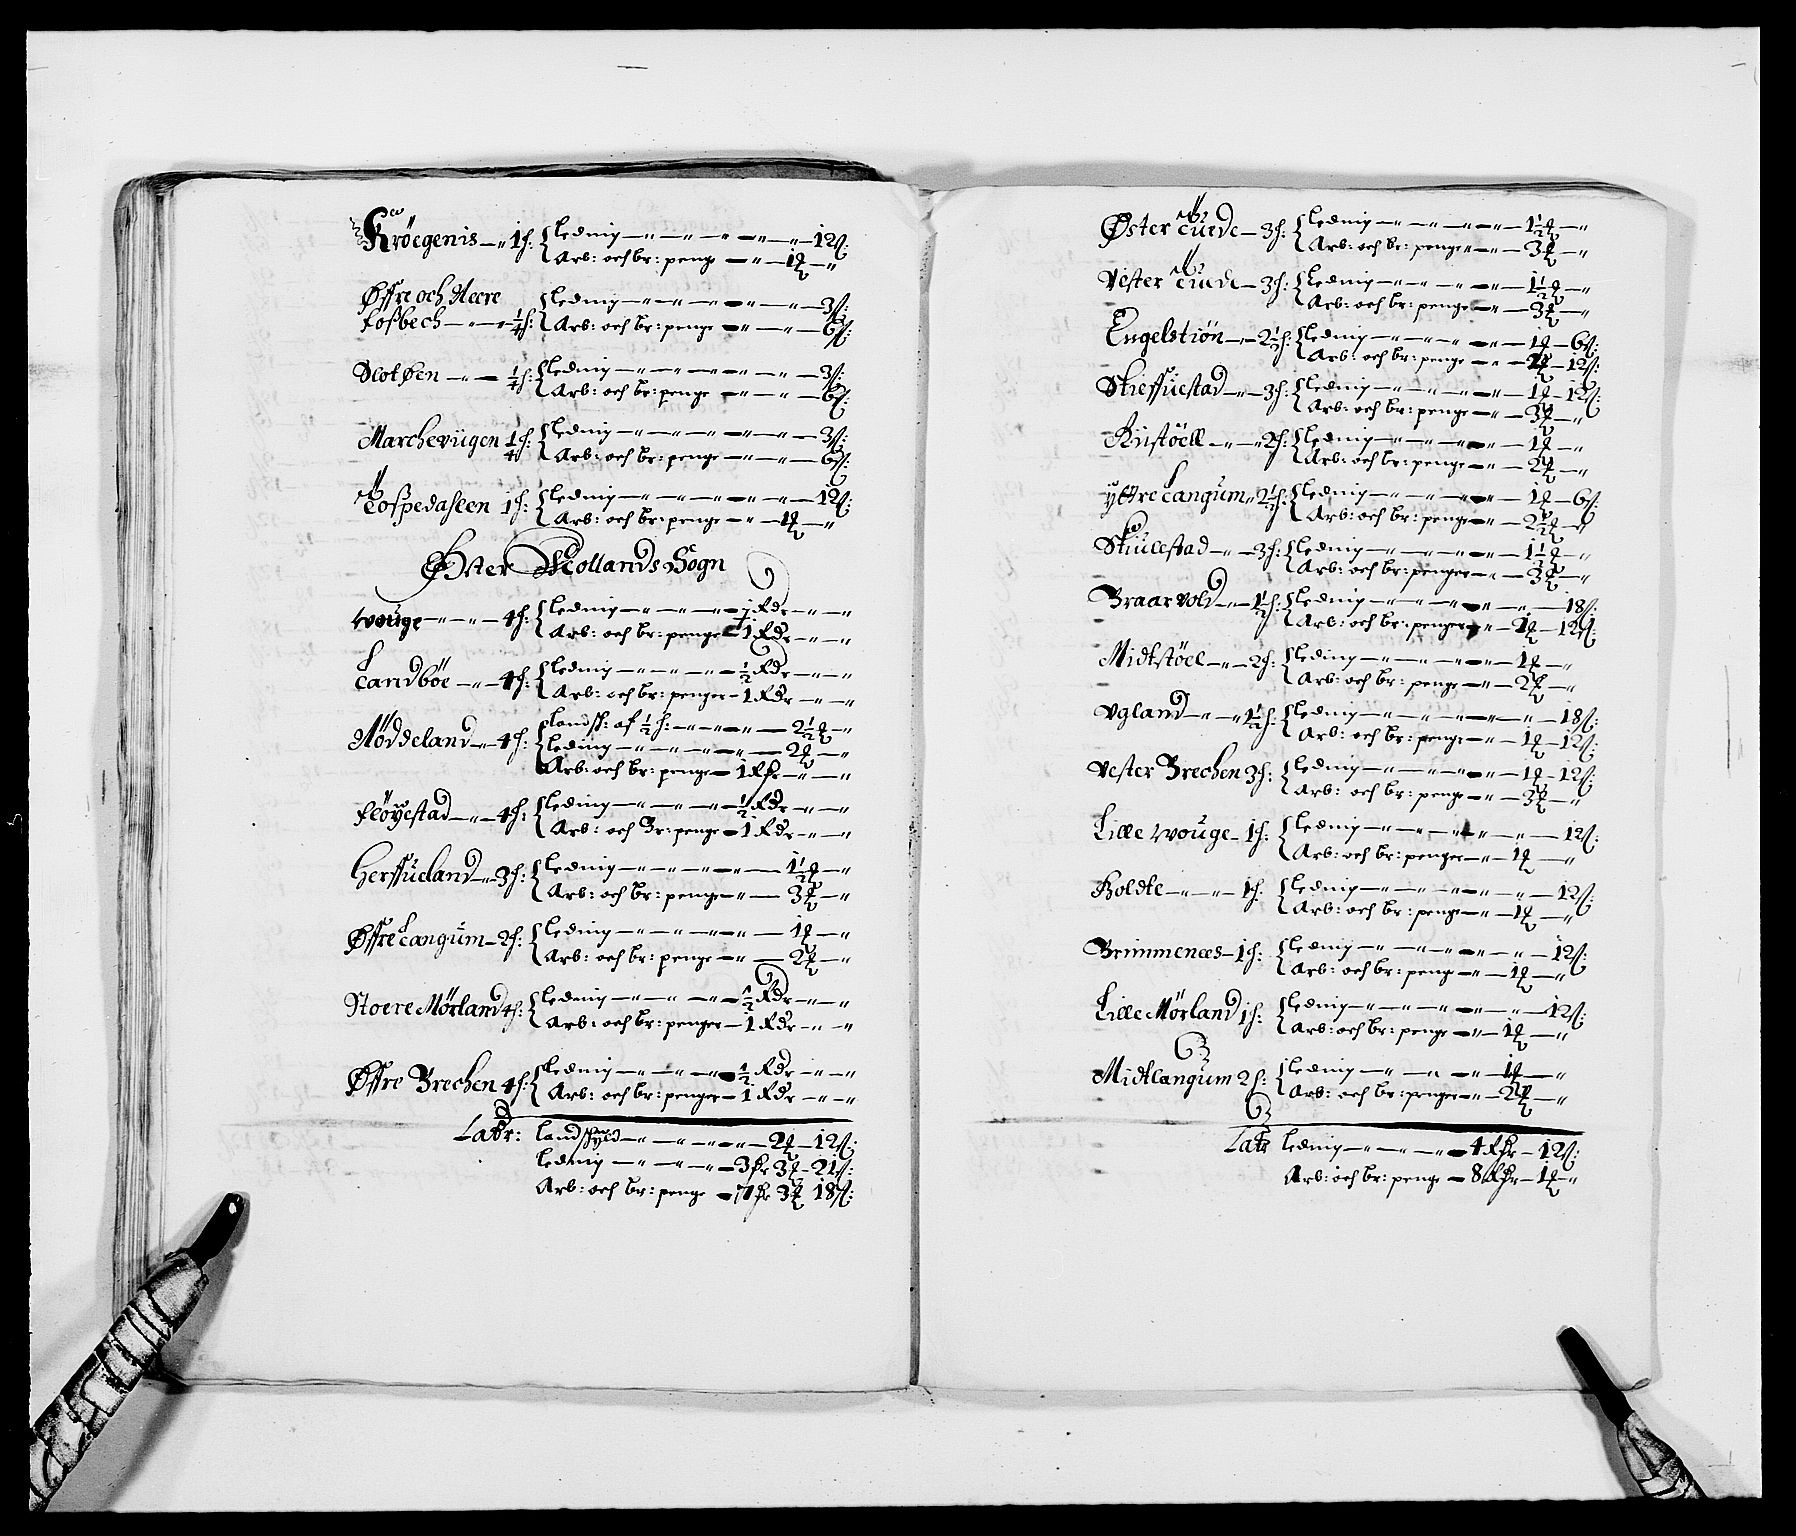 Kröegenis — 1 h: { leding — 12 s:
Arb: och br: penge — 1 q —
Øffre och Neere
Fosbech — 1/4 h: { leding — 3 s:
Arb: och br: penge — 6 s:
Slotøen — 1/4 h: { leding — 3 s:
Arb: och br: penge — 6 s:
Marchevügen 1/4 h: { leding — 3 s:
Arb: och br: penge — 6 s:
1 h: { leding — 12 s:
Arb: och br: penge — 1 q —
Øster Mollands Sogn
Wouge — 4 h: { leding — 1/2 Rdr —
Arb: och br: penge — 1 Rdr —
Landböe — 4 h: { leding — 1/2 Rdr —
Arb: och br: penger — 1 Rdr —
Nöddeland — 4 h: { landsk: af 1/2 h: — 2 1/2 q —
leding — 2 q —
Arb: och br: penge — 1 Rdr —
Flöyestad — 4 h: { leding — 1/2 Rdr —
Arb: och Br: penge — 1 Rdr —
Herffüeland — 3 h: { leding — 1 1/2 q —
Arb: och br: penge — 3 q —
Øffre Langüm — 2 h: { leding — 1 q —
Arb: och br: penge — 2 q —
Stoere Mörland 4 h: { leding — 1/2 Rdr —
Arb: och br: penger — 1 Rdr —
Øffre Brechen 4 h: { leding — 1/2 Rdr —
Arb: och br: penger — 1 Rdr —
Latr: landskyld — 2 q — 12 s:
leding — 3 Rdr 3 q — 21 s:
Arb: och br: penge — 7 Rdr 3 q 18 s:
Øster — 3 h: { leding — 1 1/2 q —
Arb: och br: penge — 3 q —
Vester — 3 h: { leding — 1 1/2 q —
Arb: och br: penge — 3 q —
Engelstiön — 2 1/2 h: { leding — 1 q — 6 s:
Arb: och br: penge — 2 q — 12 s:
Skieffüestad — 3 h: { leding — 1 q — 12 s:
Arb: och br: penge — 3 q —
Rüstöell — 2 h: { leding — 1 q —
Arb: och br: penge — 2 q —
Yttre Langüm 2 1/2 h: { leding — 1 q — 6 s:
Arb: och br: penge — 2 1/2 q —
Sküllestad — 3 h: { leding — 1 1/2 q —
Arb: och br: penger — 3 q —
Braarvold — 1 1/2 h: { leding — 18 s:
Arb: och br: penger — 1 q — 12 s:
Midtstöel — 2 h: { leding — 1 q —
Arb: och br: penger — 2 q —
Vgland — 1 1/2 h: { leding — 18 s:
Arb: och br: penge — 1 q — 12 s:
Vester Brechen 3 h: { leding — 1 q — 12 s:
Arb: och br: penge — 3 q —
Lille Wouge — 1 h: { leding — 12 s:
Arb: och br: penger — 1 q —
Holdte — 1 h: { leding — 12 s:
Arb: och br: penge — 1 q —
Brimmenees — 1 h: { leding — 12 s:
Arb: och br: penge — 1 q —
Lille Mörland 1 h: { leding — 12 s:
Arb: och br: penge — 1 q —
Midtlangüm 2 h: { leding — 1 q —
Arb: och br: penger — 2 q —
Latr leding — 4 Rdr — 12 s:
Arb: och br: penge — 8 Rdr — 1 q —